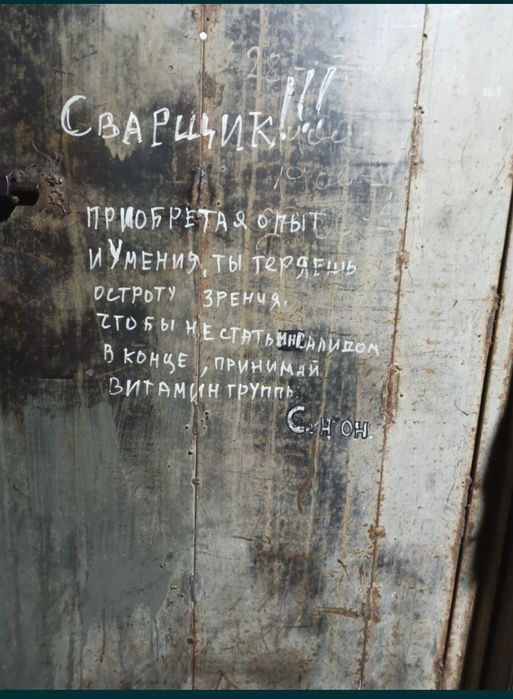 Сварщик!!!
приобретая опыт
и умения, ты теряешь
остроту зрения.
чтобы не стать инвалидом
в конце, принимай
витамин группы
C₂H5OH.